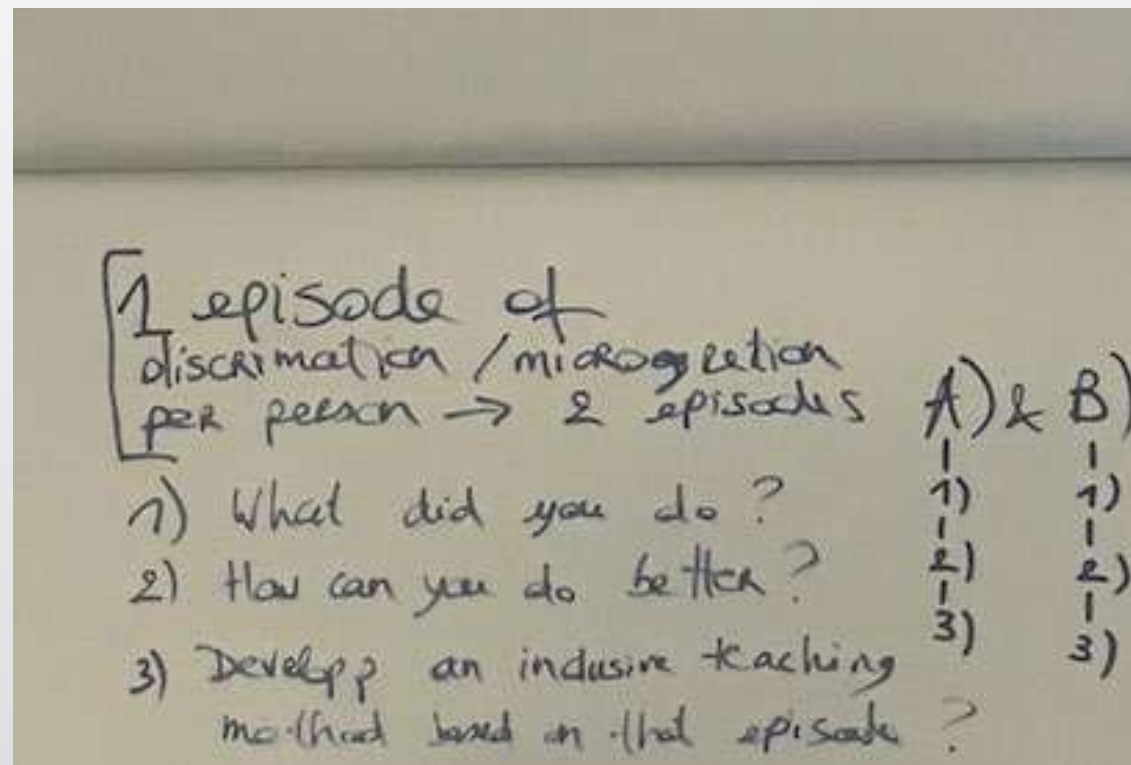 1 episode of
discrimation / microggretion
per person → 2 episodes A) & B)
1) What did you do ? 1) 1)
2) How can you do better ? 2) 2)
3) Developp an inclusive teaching 3) 3)
method based on that episode ?